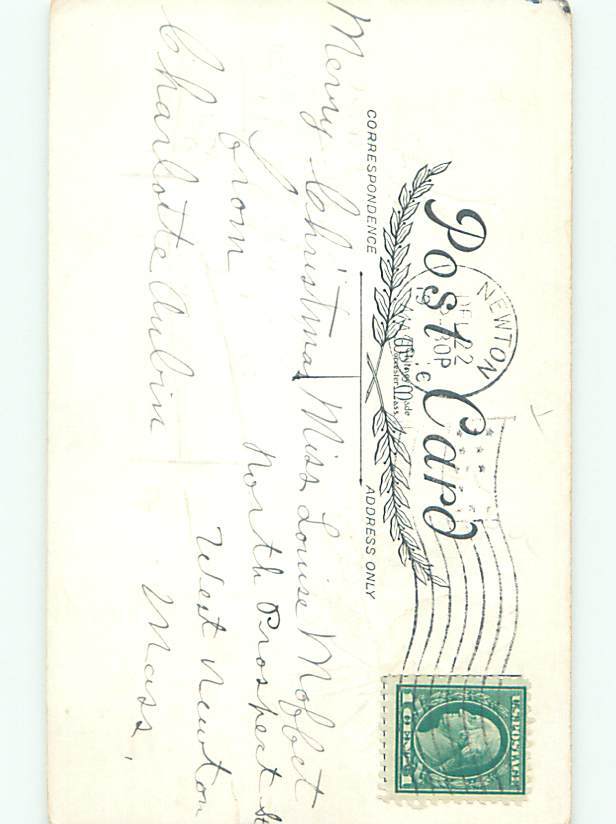 Post Card
NEWTON
DEC 22
30 P
Whitney Made
Worcester, Mass.
CORRESPONDENCE
ADDRESS ONLY
U.S. POSTAGE
1 CENT 1
Merry Christmas
from
Charlotte Aubin
Miss Louise Moffet
North Prospect St
West Newton
Mass.